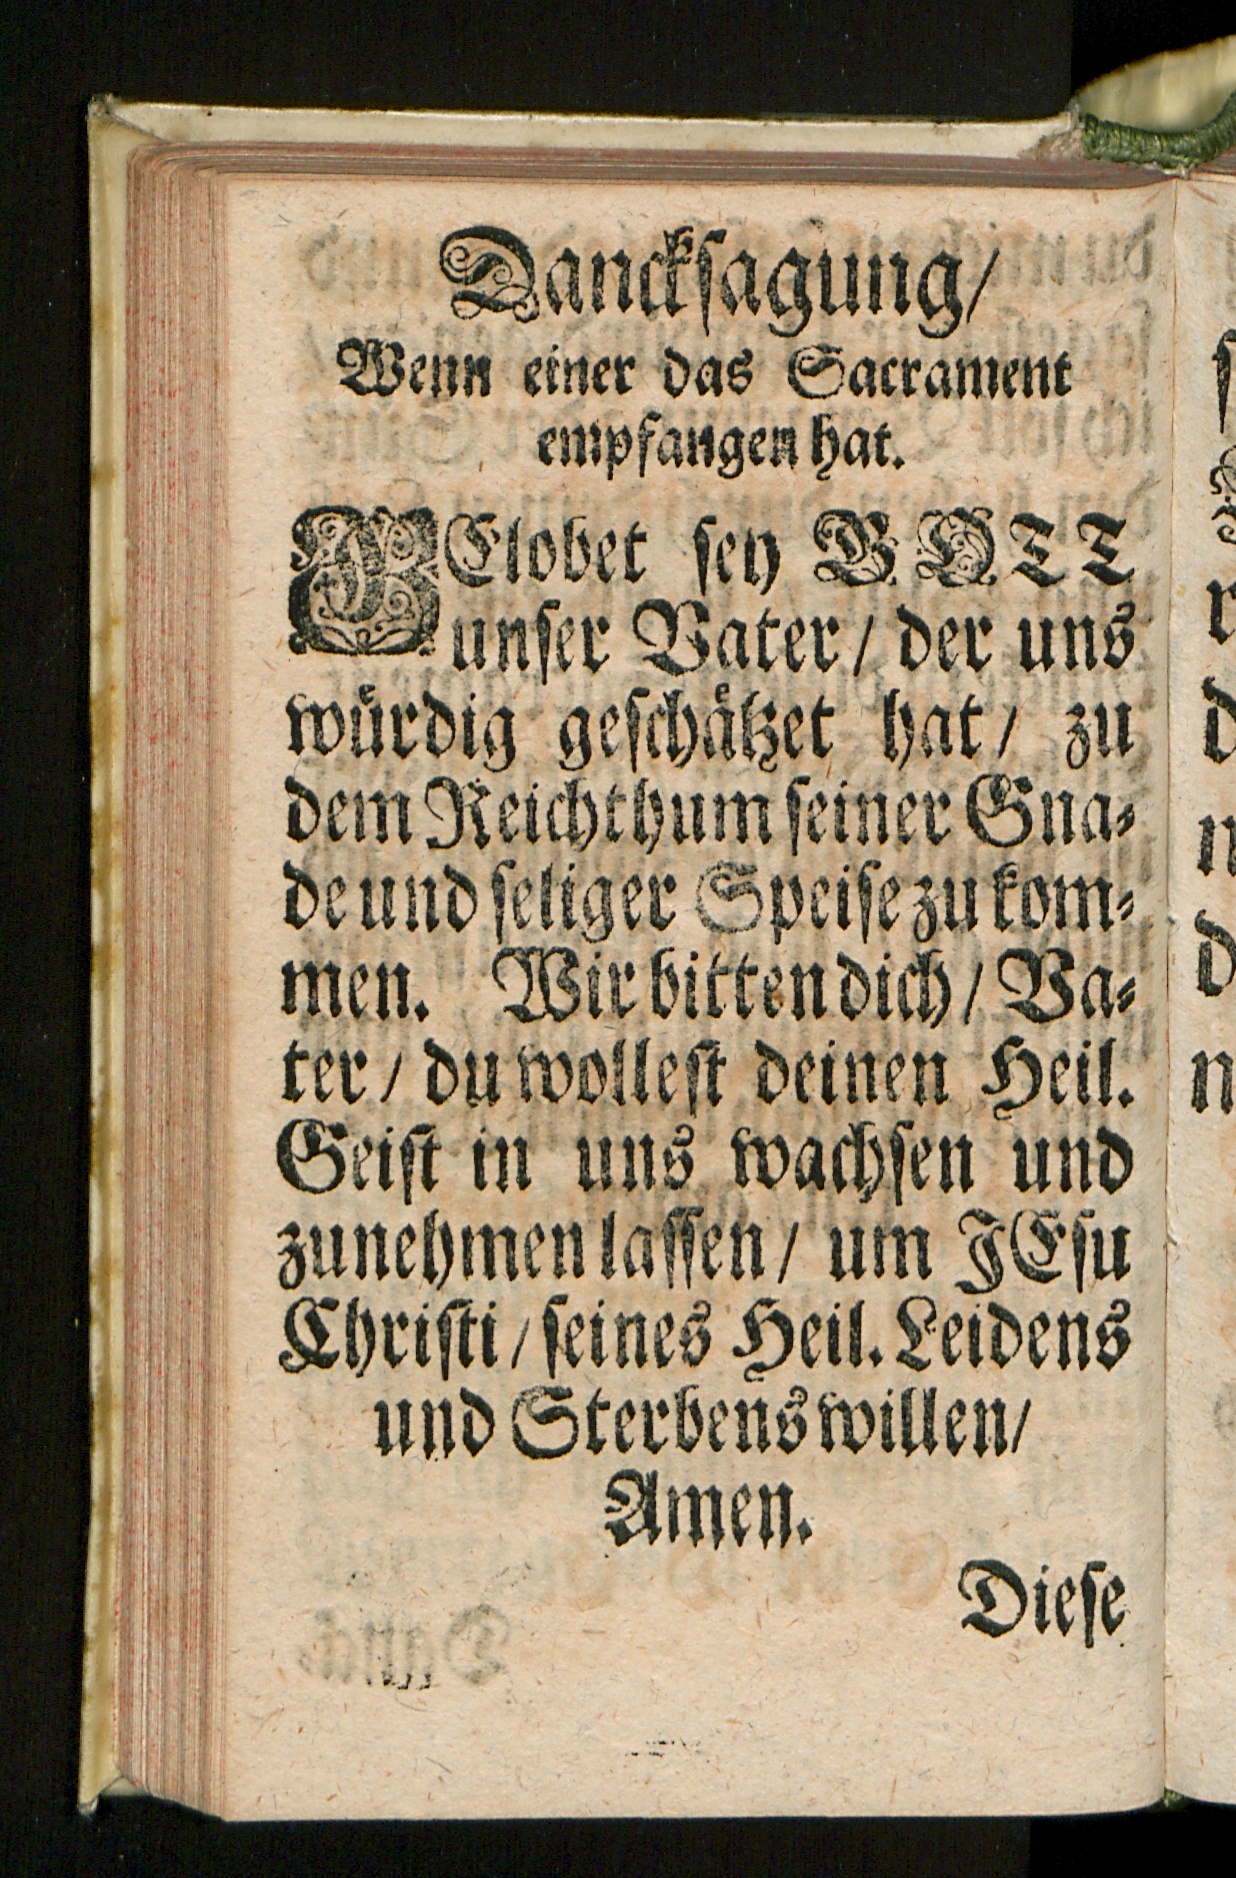 Danckſagung/
Wenn einer das Sacrament
empfangen hat.
GElobet ſey GOTT
unſer Vater/ der uns
wuͤrdig geſchaͤtzet hat/ zu
dem Reichthum ſeiner Gna⸗
de und ſeliger Speiſe zu kom⸗
men. Wir bitten dich/ Va⸗
ter/ du wolleſt deinen Heil.
Geiſt in uns wachſen und
zunehmen laſſen/ um JEſu
Chriſti/ ſeines Heil. Leidens
und Sterbens willen/
Amen.
Dieſe